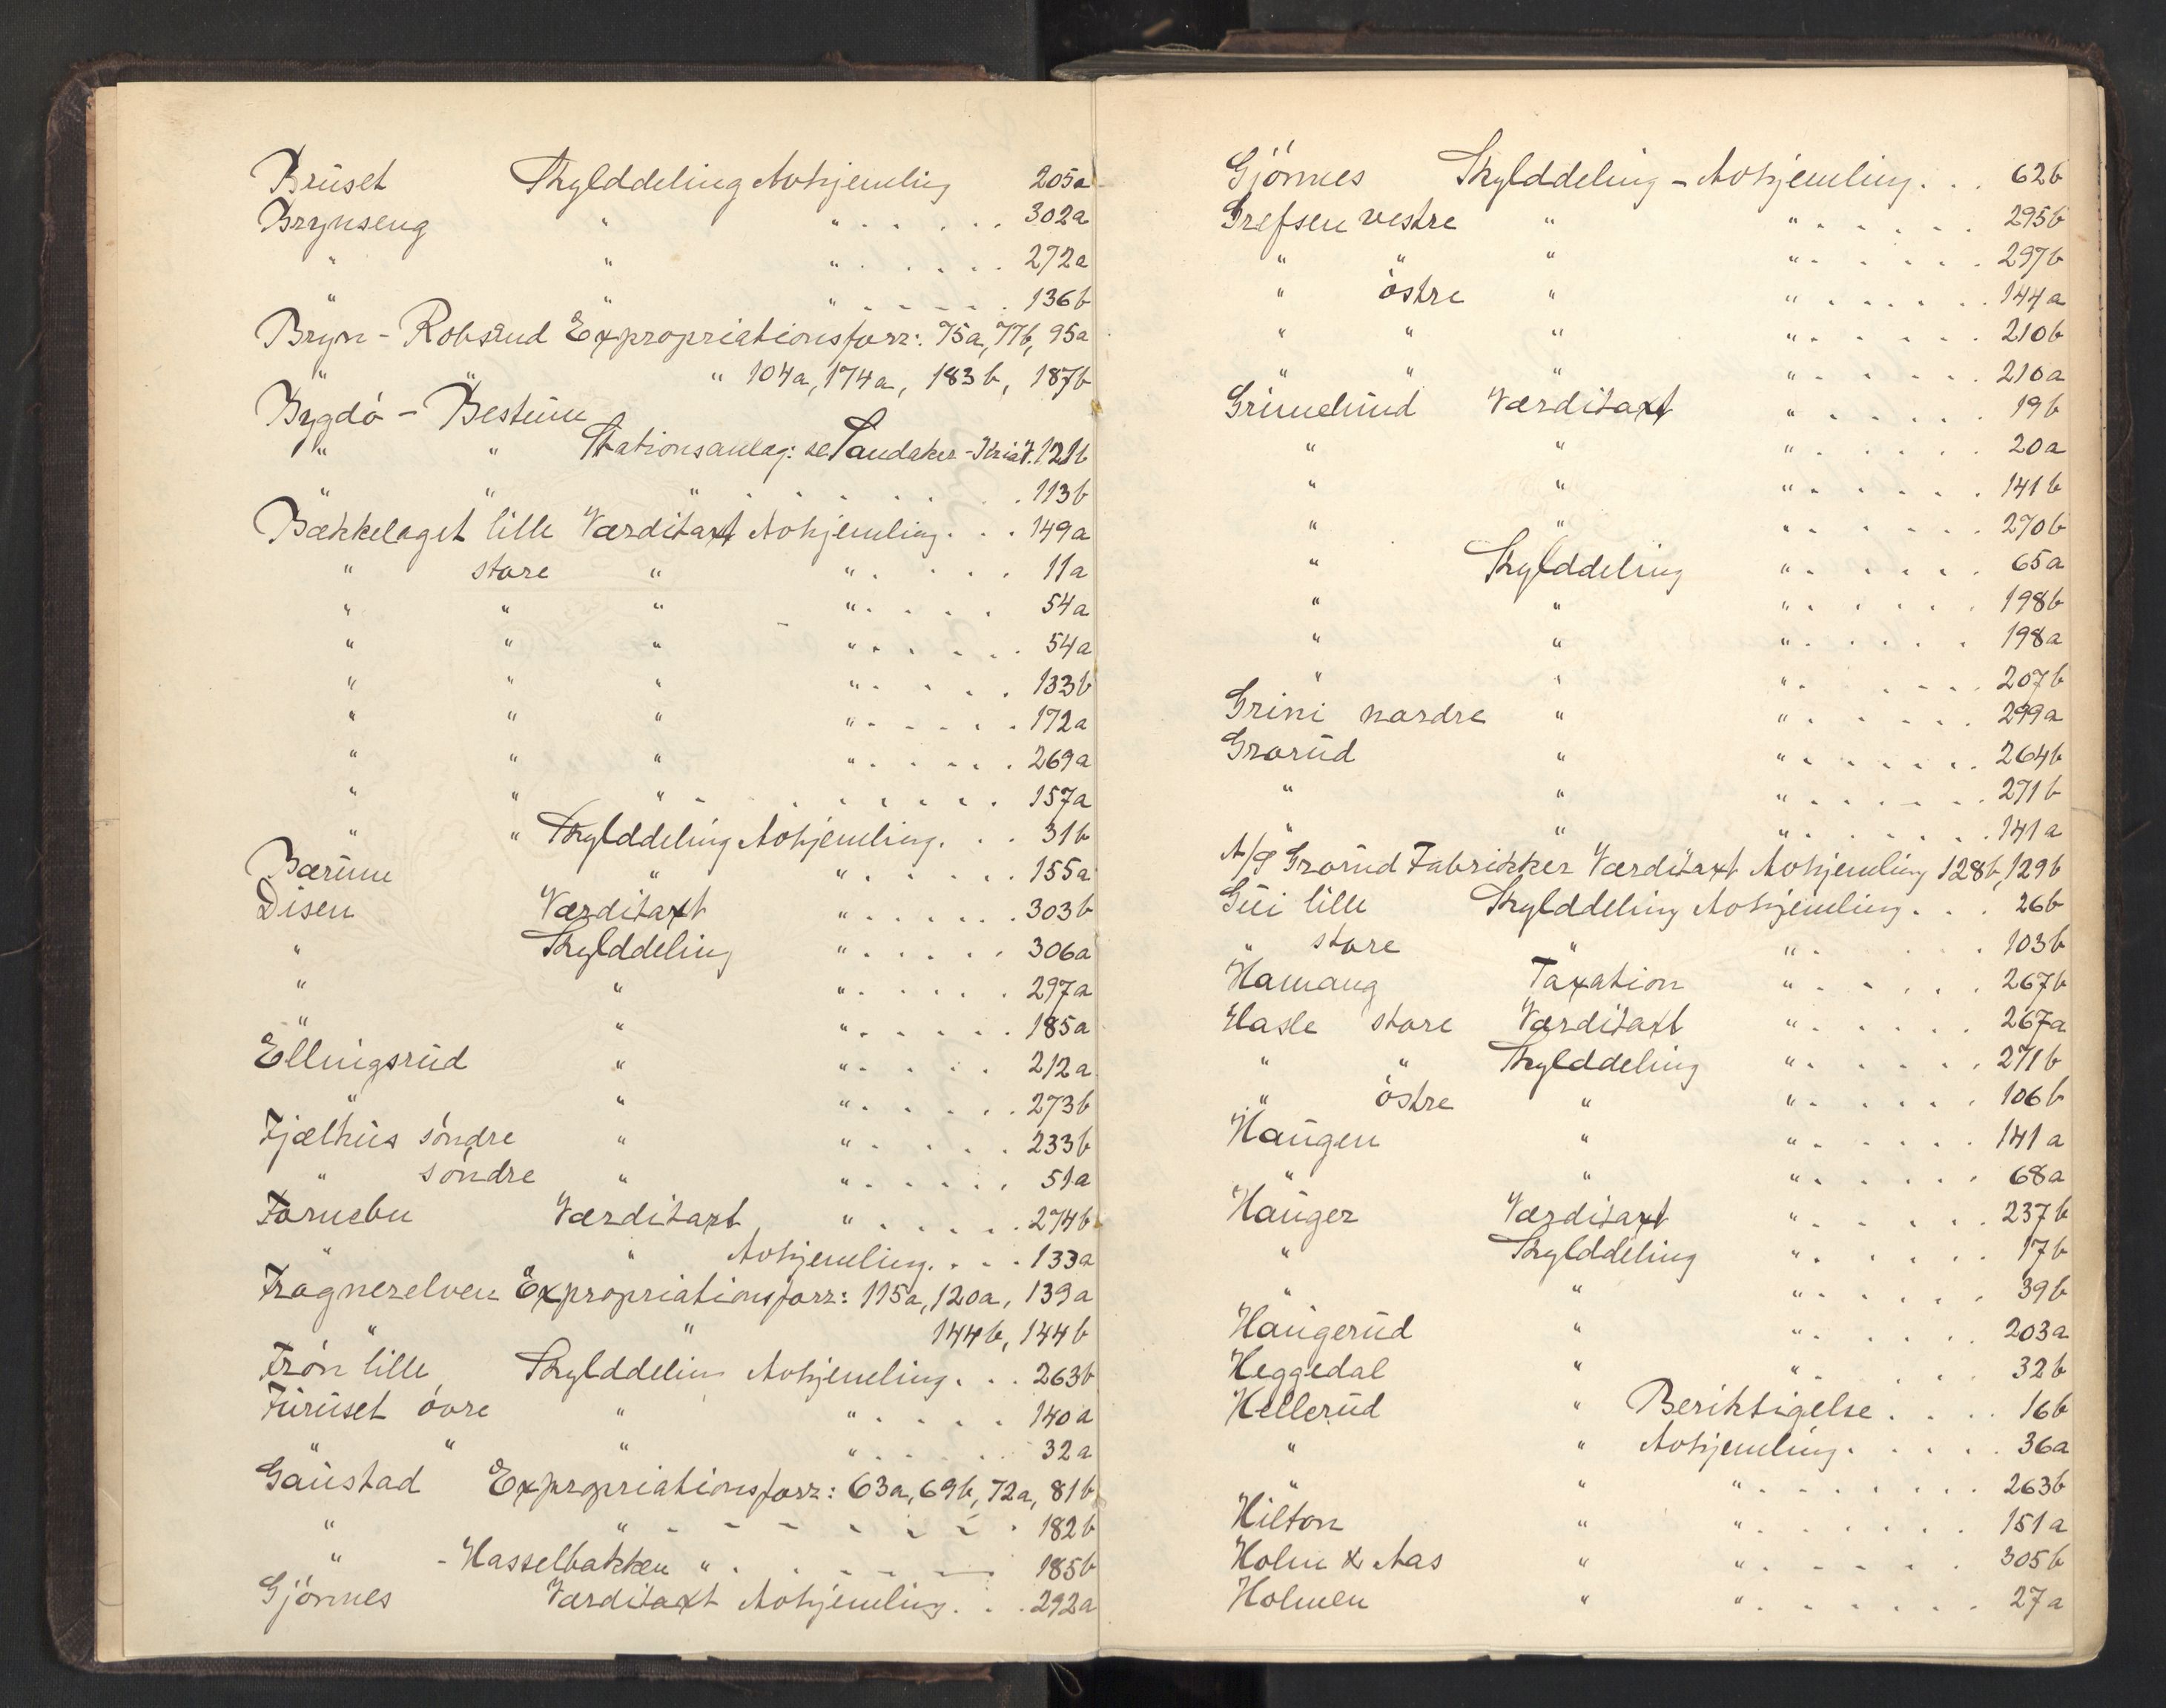 Bruset Skylddeling Avhjemling 205a
Brynseng " " . . . . . 302a
" " " . . . . . 272a
" " " . . . . . 136b
Bryn - Robsrud Expropriationsforr: 75a, 77b, 95a
" " " 104a, 174a, 183b, 187b
Bygdö - Bestum
" " Stationsanlæg: se Sandaker- 121b
" " " . . . . . . 113b
Bækkelaget lille Værditaxt Avhjemling . . . 149a
" store " " . . . . 11a
" " " " . . . . 54a
" " " " . . . . . 54a
" " " " . . . . 133b
" " " " . . . . . 172a
" " " " . . . . . 269a
" " " . . . . . . . 157a
" " Skylddeling Avhjemling . . . 31b
Bærum " " . . . . . 155a
Disen Værditaxt " . . . . . . 303b
" Skylddeling " . . . . . 306a
" " " . . . . . 297a
" " " . . . . . 185a
Ellingsrud " " . . . . 212a
" " " . . . . . 273b
Fjælhus söndre " " . . . . . 233b
" söndre " " . . . . . 51a
Fornebu Værditaxt " . . . . . 274b
" " Avhjemling . . . . 133a
Frognerelven Expropriationsforr: 115a, 120a, 139a
" " 144b, 144b
Frön lille Skylddeling Avhjemling . . . 263b
Furuset övre " " . . . . . 140a
" " " " . . . . . 32a
Gaustad Expropriationsforr: 63a, 69b, 72a, 81b
" " . . . . . . . 182b
" - Hasselbakken " . . . . . 185b
Gjönnes Værditaxt Avhjemling . . . 292a
Gjönnes Skylddeling - Avhjemling . . . 62b
Grefsen vestre " " . . . . . 295b
" " " " . . . . . 297b
" östre " " . . . . . . 144a
" " " " . . . . . 210b
" " " " . . . . . 210a
Grimelund Værditaxt " . . . . . 19b
" " " . . . . . 20a
" " " . . . . . 141b
" " " . . . . . 270b
" Skylddeling " . . . . . 65a
" " " . . . . . 198b
" " " . . . . . 198a
" " " . . . . . 207b
Grini nordre " " . . . . . 299a
Grorud " " . . . . . . 264b
" " " . . . . . . 271b
" " " . . . . . . 141a
A/S Grorud Fabrikker Værditaxt Avhjemling 128b, 129b
Gui lille Skylddeling Avhjemling . . . 26b
" store " " . . . . 103b
Hamang Taxation " . . . . . 267b
Hasle store Værditaxt " . . . . . 267a
" " Skylddeling " . . . . . 271b
" östre " " . . . . . 106b
Haugen " " . . . . . 141a
" " " . . . . . 68a
Hauger Værditaxt " . . . . . 237b
" Skylddeling " . . . . . 17b
" " " . . . . . 39b
Haugerud " " . . . . . 203a
Heggedal " " . . . . 32b
Hellerud " Beriktigelse . . . . 16b
" " Avhjemling . . . . . 36a
" " " . . . . . . . 263b
Hilton " " . . . . . . 151a
Holm & Aas " " . . . . . 305b
Holmen " " . . . . . . 27a